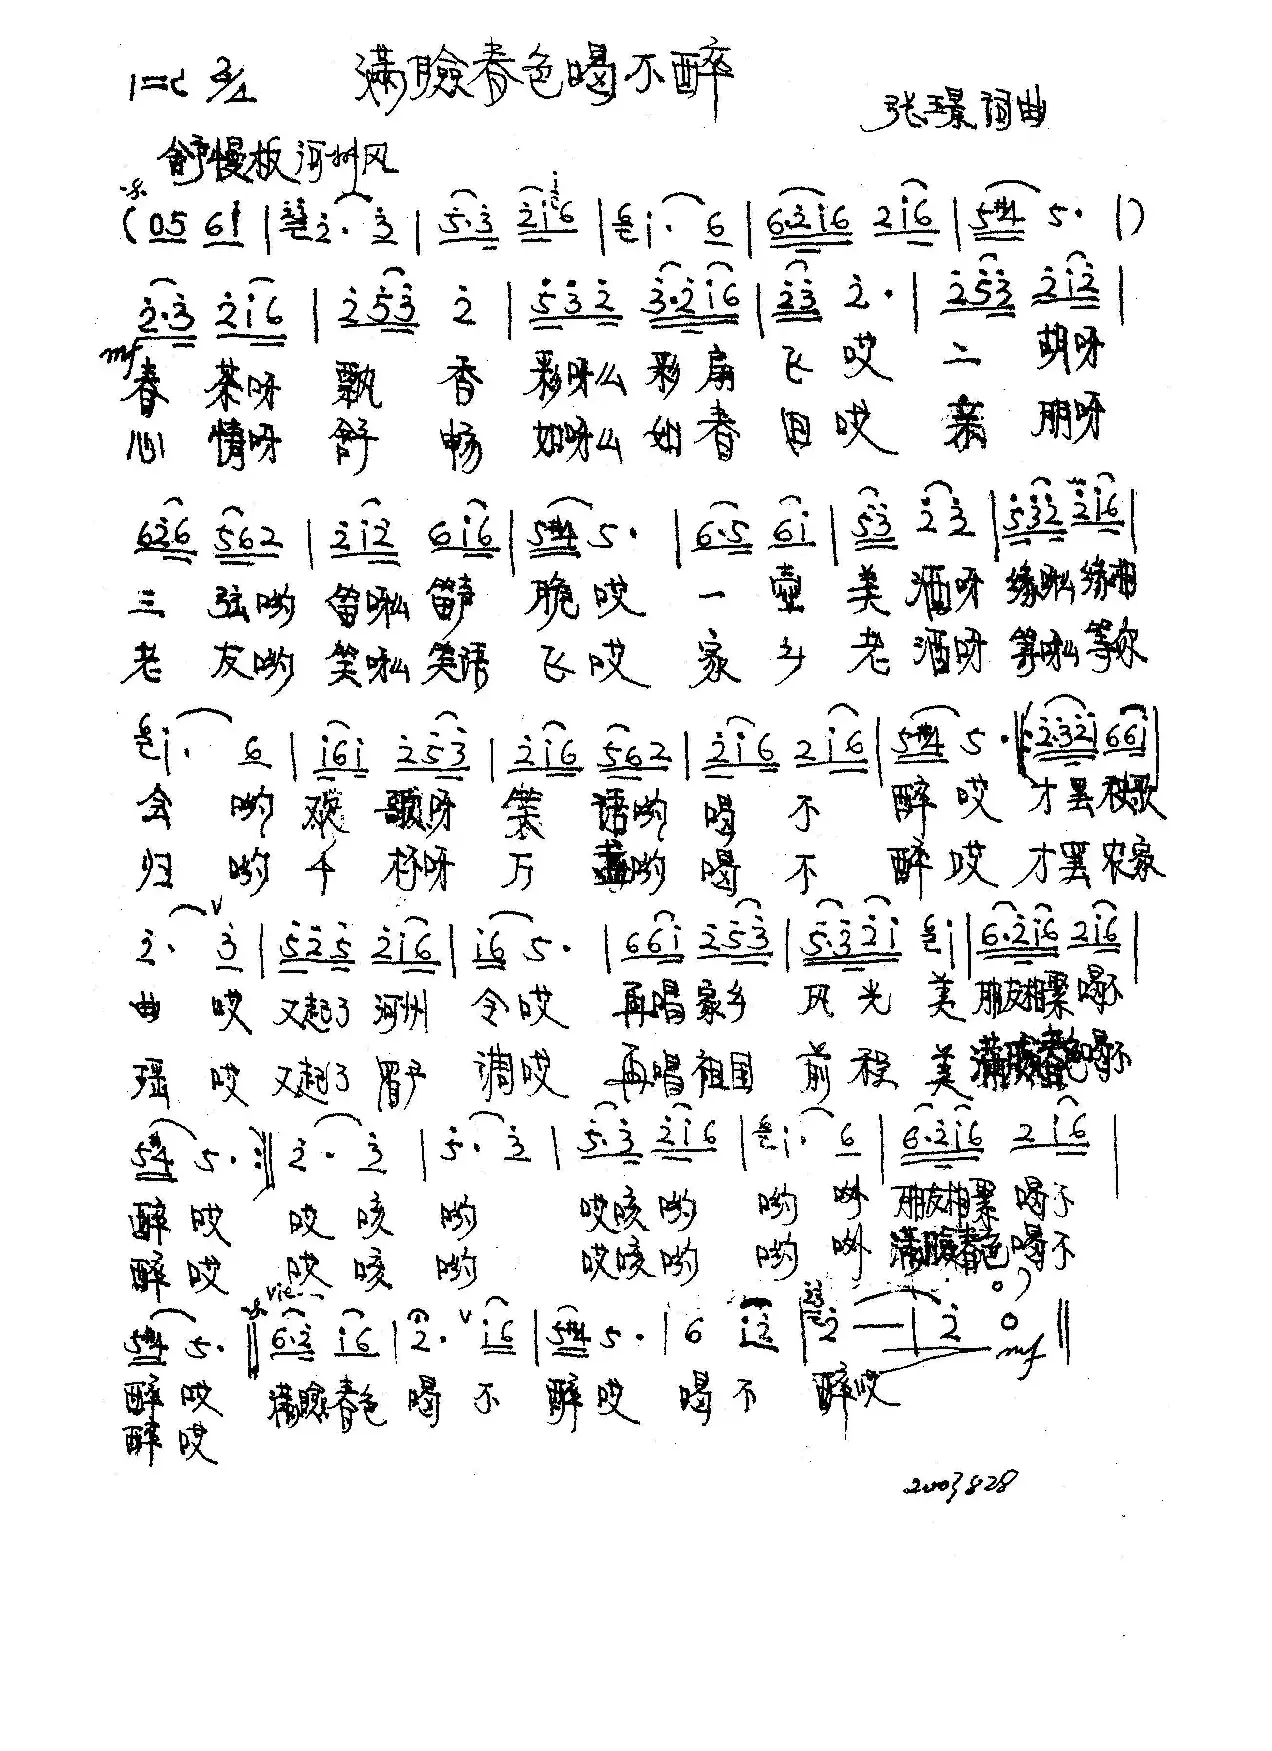 1=C 2/4 满脸春色喝不醉
张璟词曲
舒慢板 河州风
(05 6i | 2· 3 | 5·3 2i6 | i· 6 | 6·2i6 2i6 | 5#4 5· |)
2·3 2i6 | 253 2 | 532 3·2i6 | 23 2· | 253 2i2 |
mf
春 茶呀 飘 香 彩呀么 彩扇 飞 哎 二 胡呀
心 情呀 舒 畅 如呀么 如春 回 哎 亲 朋呀
626 562 | 2i2 6i6 | 5#4 5· | 6·5 6i | 53 23 | 532 2i6 |
三 弦哟 笛呀么 笛声 脆 哎 一 壶 美 酒呀 缘呀么 缘相
老 友哟 笑呀么 笑语 飞 哎 家 乡 老 酒呀 等呀么 等你
i· 6 | i6i 253 | 2i6 562 | 2i6 2i6 | 5#4 5· |: 2·32i 66i |
会 哟 欢 歌呀 笑 语哟 喝 不 醉 哎 才罢 秧歌
归 哟 千 杯呀 万 盏哟 喝 不 醉 哎 才罢 农家
2· 3 | 525 2i6 | i6 5· | 66i 253 | 5·32i i | 6·2i6 2i6 |
曲 哎 又起了 河州 令 哎 再唱 家乡 风 光 美 朋友相聚 喝不
瑶 哎 又起了 眉户 调 哎 再唱 祖国 前 程 美 满脸春色 喝不
5#4 5· :| 2· 3 | 5· 3 | 5·3 2i6 | i· 6 | 6·2i6 2i6 |
醉 哎 哎 咳 哟 哎咳 哟 哟 朋友相聚 喝不
醉 哎 哎 咳 哟 哎咳 哟 哟 满脸春色 喝不
5#4 5· || 6·2 i6 | 2· i6 | 5#4 5· | 6 i2 | 2 — | 2 0 ||
mf
醉 哎 满脸春色 喝 不 醉 哎 喝 不 醉哎
醉 哎
2003 8 28